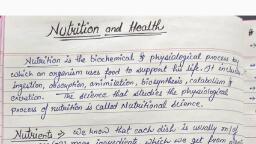 Nutrition and Health
Nutrition is the biochemical & physiological process by
which an organism uses food to support his life. It includes
ingestion, absorption, assimilation, biosynthesis, catabolism &
excretion. The science that studies the physiological
process of nutrition is called Nutritional Science.
Nutrients => We know that each dish is usually m/o
more ingredients which we get from